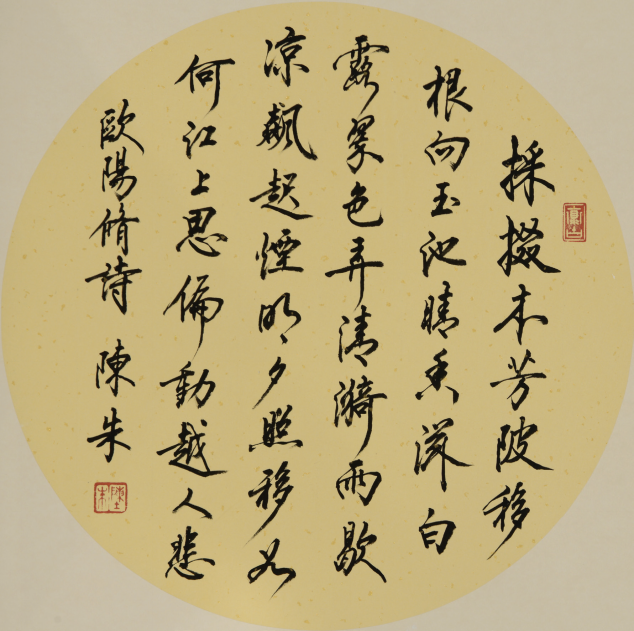 採掇本芳陂移
根向玉池晴香白
露翠色弄清漪雨歇
涼飆起煙明夕照移如
何江上思偏動越人悲
歐陽脩詩 陳朱